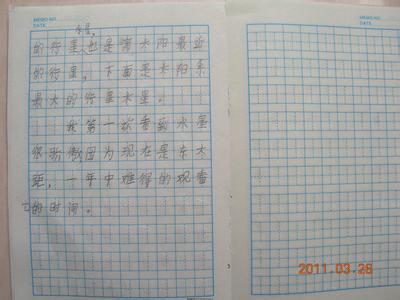 MEMO NO.
DATE
水星,
的行星也是离太阳最近
的行星，下面是太阳系
最大的行星木星。
我第一次看到水星
很骄傲因为现在是东大
距，一年中难得的观看
它的时间。
MEMO NO.
DATE
2011.03.28